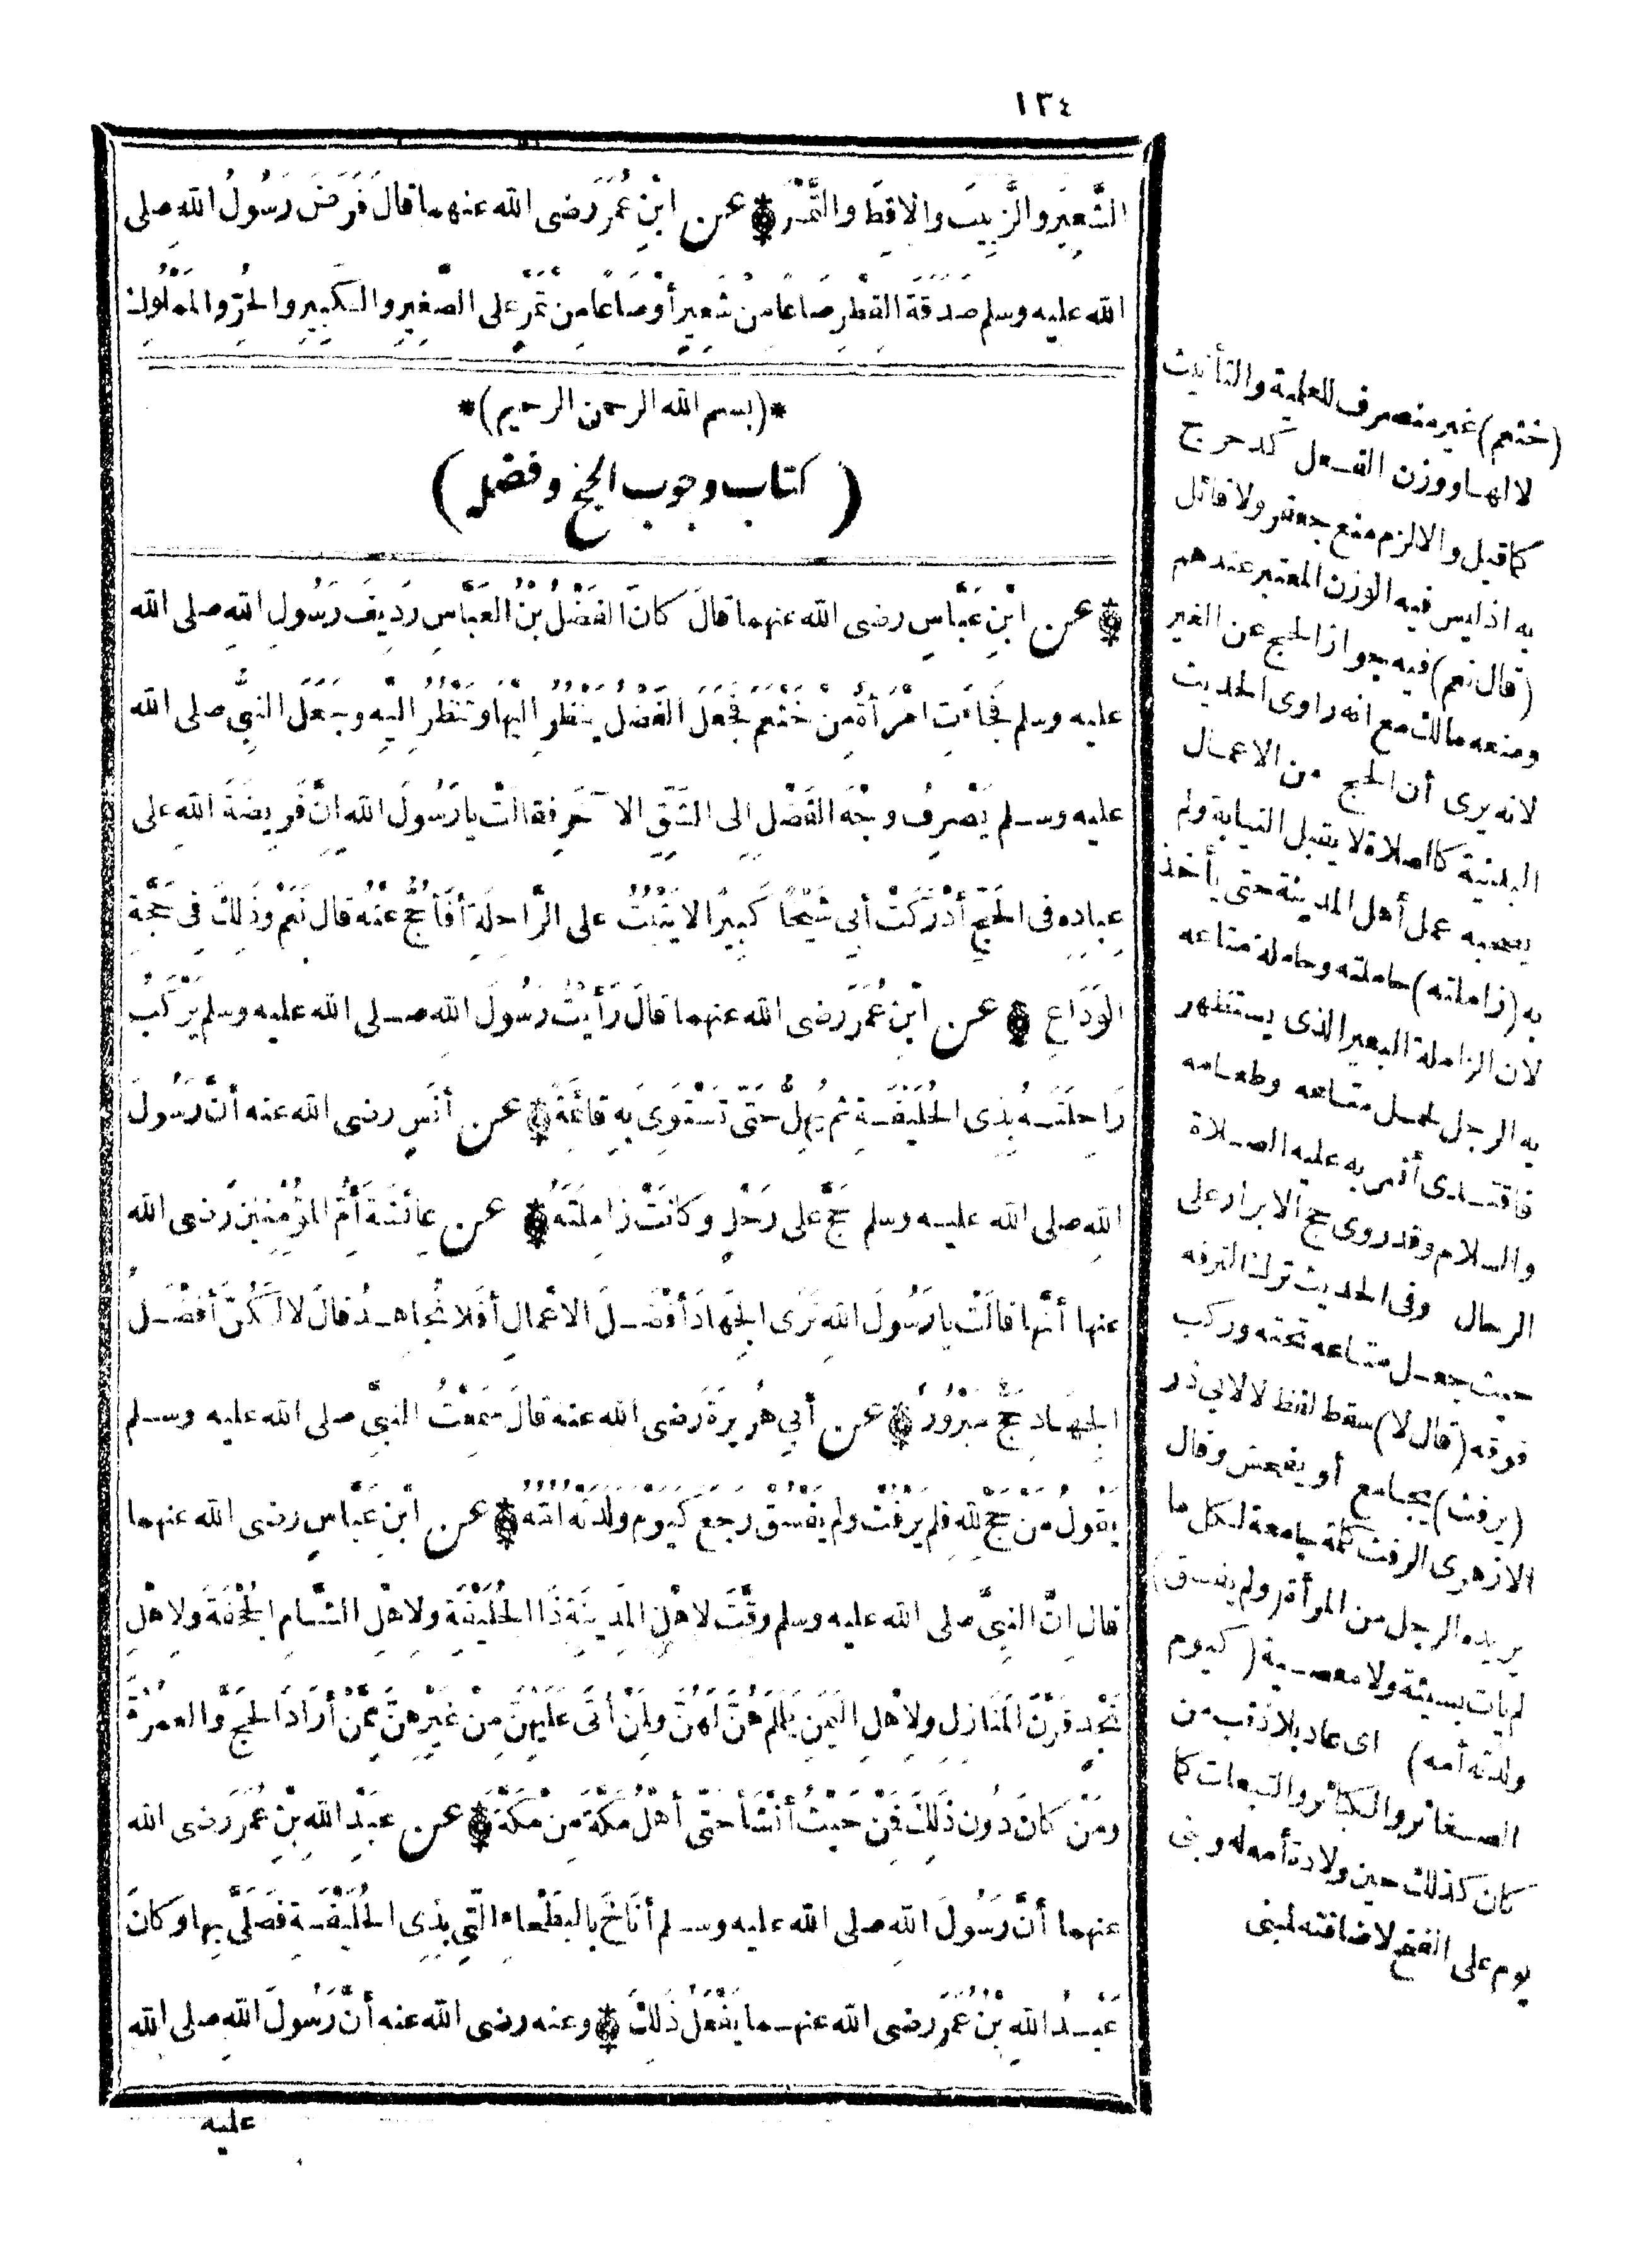 ١٣٤
الشَّعِيرَ والزَّبِيبَ والاقِطَ والتَّمْرَ ۞ عن ابْنِ عُمَرَ رَضى الله عنهما قالَ فَرَضَ رَسُولُ اللهِ صلى
الله عليه وسلم صَدَقَةَ الفِطْرِ صَاعًا مِنْ شَعِيرٍ أوْ صَاعًا مِنْ تَمْرٍ على الصَّغِيرِ والكَبِيرِ والحُرِّ والمَمْلُوكِ
*(بسم الله الرحمن الرحيم)*
(كتاب وجوب الحج وفضله)
۞ عن ابْنِ عَبَّاسٍ رضى الله عنهما قالَ كانَ الفَضْلُ بْنُ العَبَّاسِ رَدِيفَ رَسُولِ اللهِ صلى الله
عليه وسلم فَجَاءَتِ امْرَأةٌ مِنْ خَثْعَمَ فَجَعَلَ الفَضْلُ يَنْظُرُ الَيْهَا وتَنْظُرُ الَيْهِ وجَعَلَ النبيُّ صلى الله
عليه وسلم يَصْرِفُ وجْهَ الفَضْلِ الى الشِّقِّ الا خَرِ فقالَتْ يا رَسُولَ اللهِ انَّ فَرِيضَةَ اللهِ على
عِبادِهِ فى الحَجِّ أدْرَكَتْ أبِى شَيْخًا كَبِيرًا لا يَثْبُتُ على الرَّاحِلَةِ أفَأحُجُّ عَنْهُ قال نَعَمْ وذَلِكَ فِى حَجَّةِ
الوَدَاعِ ۞ عن ابْنِ عُمَرَ رَضى الله عنهما قالَ رَأيْتُ رَسُولَ اللهِ صلى الله عليه وسلم يَرْكَبُ
رَاحِلَتَهُ بِذِى الحُلَيْفَةِ ثم يُهِلُّ حَتَّى تَسْتَوِىَ بِهِ قائِمَةً ۞ عن أنَسٍ رضى الله عنه أنَّ رَسُولَ
اللهِ صلى الله عليه وسلم حَجَّ على رَحْلٍ وكَانَتْ زَامِلَتَهُ ۞ عن عائِشَةَ أُمِّ المُؤْمِنِينَ رَضى الله
عنها أنَّها قالَتْ يا رَسُولَ اللهِ نَرَى الجِهَادَ أفْضَلَ الاعْمالِ أفَلا نُجاهِدُ قالَ لا لَكُنَّ أفْضَلُ
الجِهادِ حَجٌّ مَبْرُورٌ ۞ عن أبِى هُرَيْرَةَ رَضى الله عنه قالَ سَمِعْتُ النبيَّ صلى الله عليه وسلم
يَقُولُ مَنْ حَجَّ لِلهِ فلم يَرْفُثْ ولم يَفْسُقْ رَجَعَ كَيَوْمَ ولَدَتْهُ أُمُّهُ ۞ عن ابْنِ عَبَّاسٍ رضى الله عنهما
قال انَّ النبيَّ صلى الله عليه وسلم وقَّتَ لاهْلِ المَدِينَةِ ذَا الحُلَيْفَةِ ولاهْلِ الشَّامِ الجُحْفَةَ ولاهْلِ
نَجْدٍ قَرْنَ المَنَازِلِ ولاهْلِ اليَمَنِ يَلَمْلَمَ هُنَّ لَهُنَّ ولِمَنْ أتَى عَلَيْهِنَّ مِنْ غَيْرِهِنَّ مِمَّنْ أرَادَ الحَجَّ والعُمْرَةَ
ومَنْ كانَ دُونَ ذَلِكَ فَمِنْ حَيْثُ أنْشَأ حَتَّى أهْلُ مَكَّةَ مِنْ مَكَّةَ ۞ عن عبَْدِ اللهِ بْنِ عُمَرَ رَضى الله
عنهما أنَّ رَسُولَ اللهِ صلى الله عليه وسلم أنَاخَ بالبَطْحاءِ الَّتِى بِذِى الحُلَيْفَةِ فَصَلَّى بِها وكانَ
عَبْدُ اللهِ بْنُ عُمَرَ رضى الله عنهما يَفْعَلُ ذَلِكَ ۞ وعنه رضى الله عنه أنَّ رَسُولَ اللهِ صلى الله
عليه
(خثعم) غير منصرف للعلمية والتأنيث
لا لها ووزن الفعل كدحرج
كما قيل والا لزم منع جعفر ولا قائل
به اذ ليس فيه الوزن المعتبر عندهم
(قال نعم) فيه جواز الحج عن الغير
ومنعه مالك مع انه راوى الحديث
لانه يرى أن الحج من الاعمال
البدنية كالصلاة لا يقبل النيابة ولم
يصحبه عمل أهل المدينة حتى يأخذ
به (زاملته) حاملته وحاملة متاعه
لان الزاملة البعير الذى يستظهر
به الرجل لحمل متاعه وطعامه
فاقتدى أنس به عليه الصلاة
والسلام وقد روى حج الابرار على
الرحال وفى الحديث ترك الترفه
حيث جعل متاعه تحته وركب
فوقه (قال لا) سقط لفظ لا لابى ذر
(يرفث) يجامع أو يفحش وقال
الازهرى الرفث كلمة جامعة لكل ما
يريده الرجل من المرأة (ولم يفسق)
لم يات بسيئة ولا معصية (كيوم
ولدته أمه) اى عاد بلا ذنب من
الصغائر والكبائر والتبعات كما
كان كذلك حين ولادة أمه له وبنى
يوم على الفتح لاضافته لمبنى